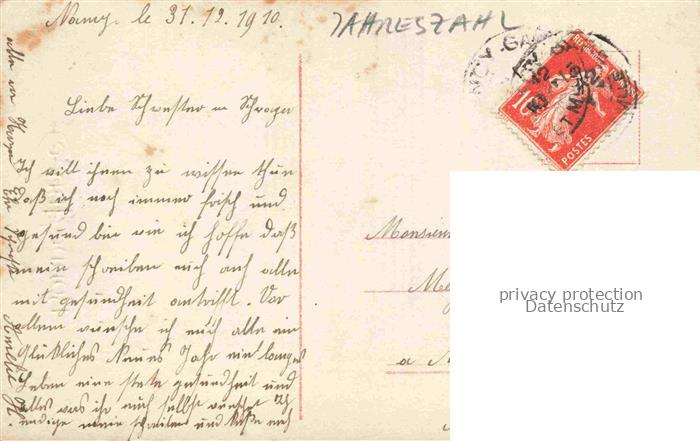 Nancy le 31.12.1910.
JAHRESZAHL
Liebe Schwester u Schwager
Ich will ihnen zu wissen thun
daß ich noch immer frisch und
gesund bin wie ich hoffe daß
mein schreiben euch auch alle
mit gesundheit antrifft. Vor
allem wünsche ich euch alle ein
Glückliches Neues Jahr ein langes
Leben eine stete gesundheit und
alles was ihr euch selbst wünschet Ich
endige mein schreiben und küße euch
alle von Herzen
Monsieur
a
10
POSTES
privacy protection
Datenschutz